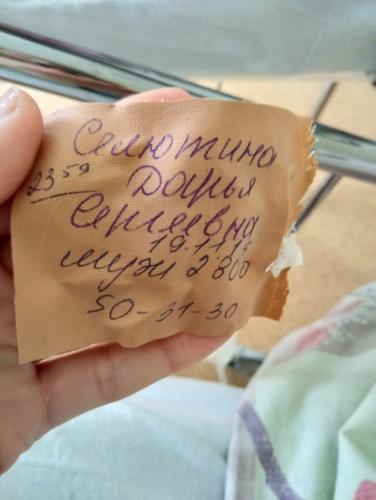 Селютина
23⁵⁹ Дарья
Сергеевна
19.11.19
муж 2800
50-31-30